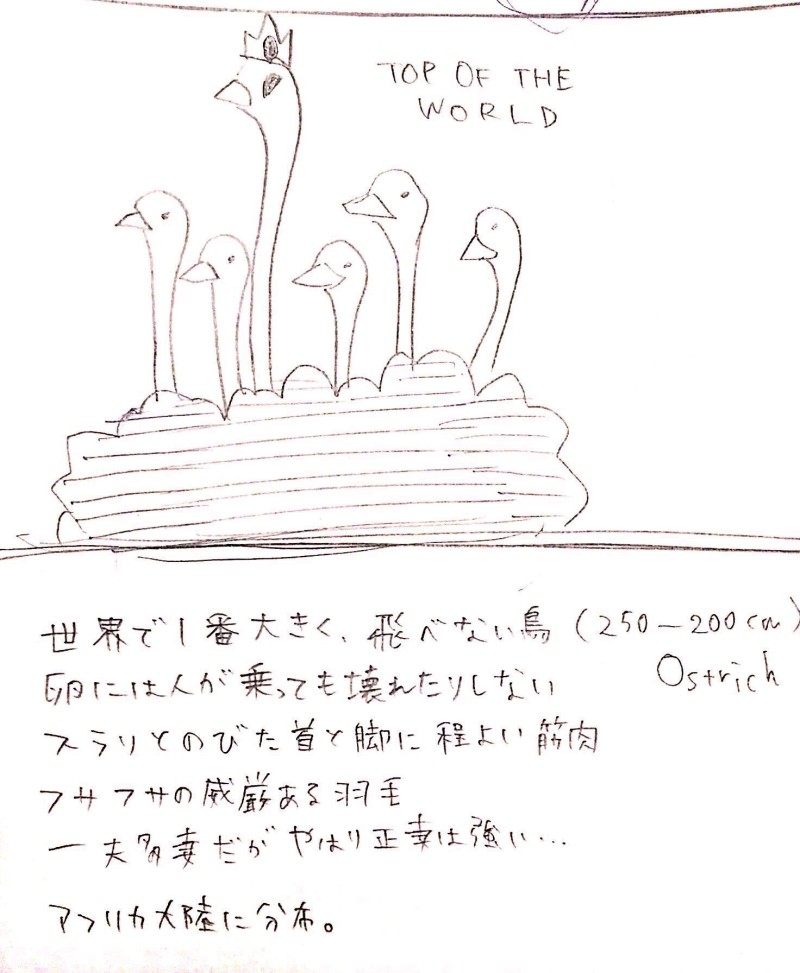 TOP OF THE
WORLD
世界で1番大きく、飛べない鳥（250―200cm）
Ostrich
卵には人が乗っても壊れたりしない
スラリとのびた首と脚に程よい筋肉
フサフサの威厳ある羽毛
一夫多妻だがやはり正妻は強い…
アフリカ大陸に分布。